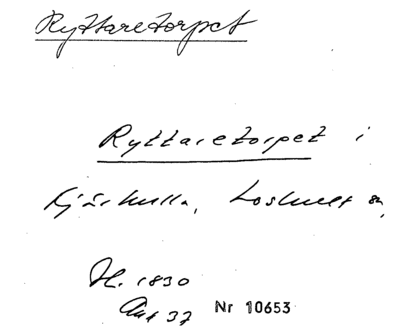 Ryttaretorpet
Ryttaretorpet i
Kjärhulla, Loshult sn,
H. 1830
Ant 37 Nr 10653